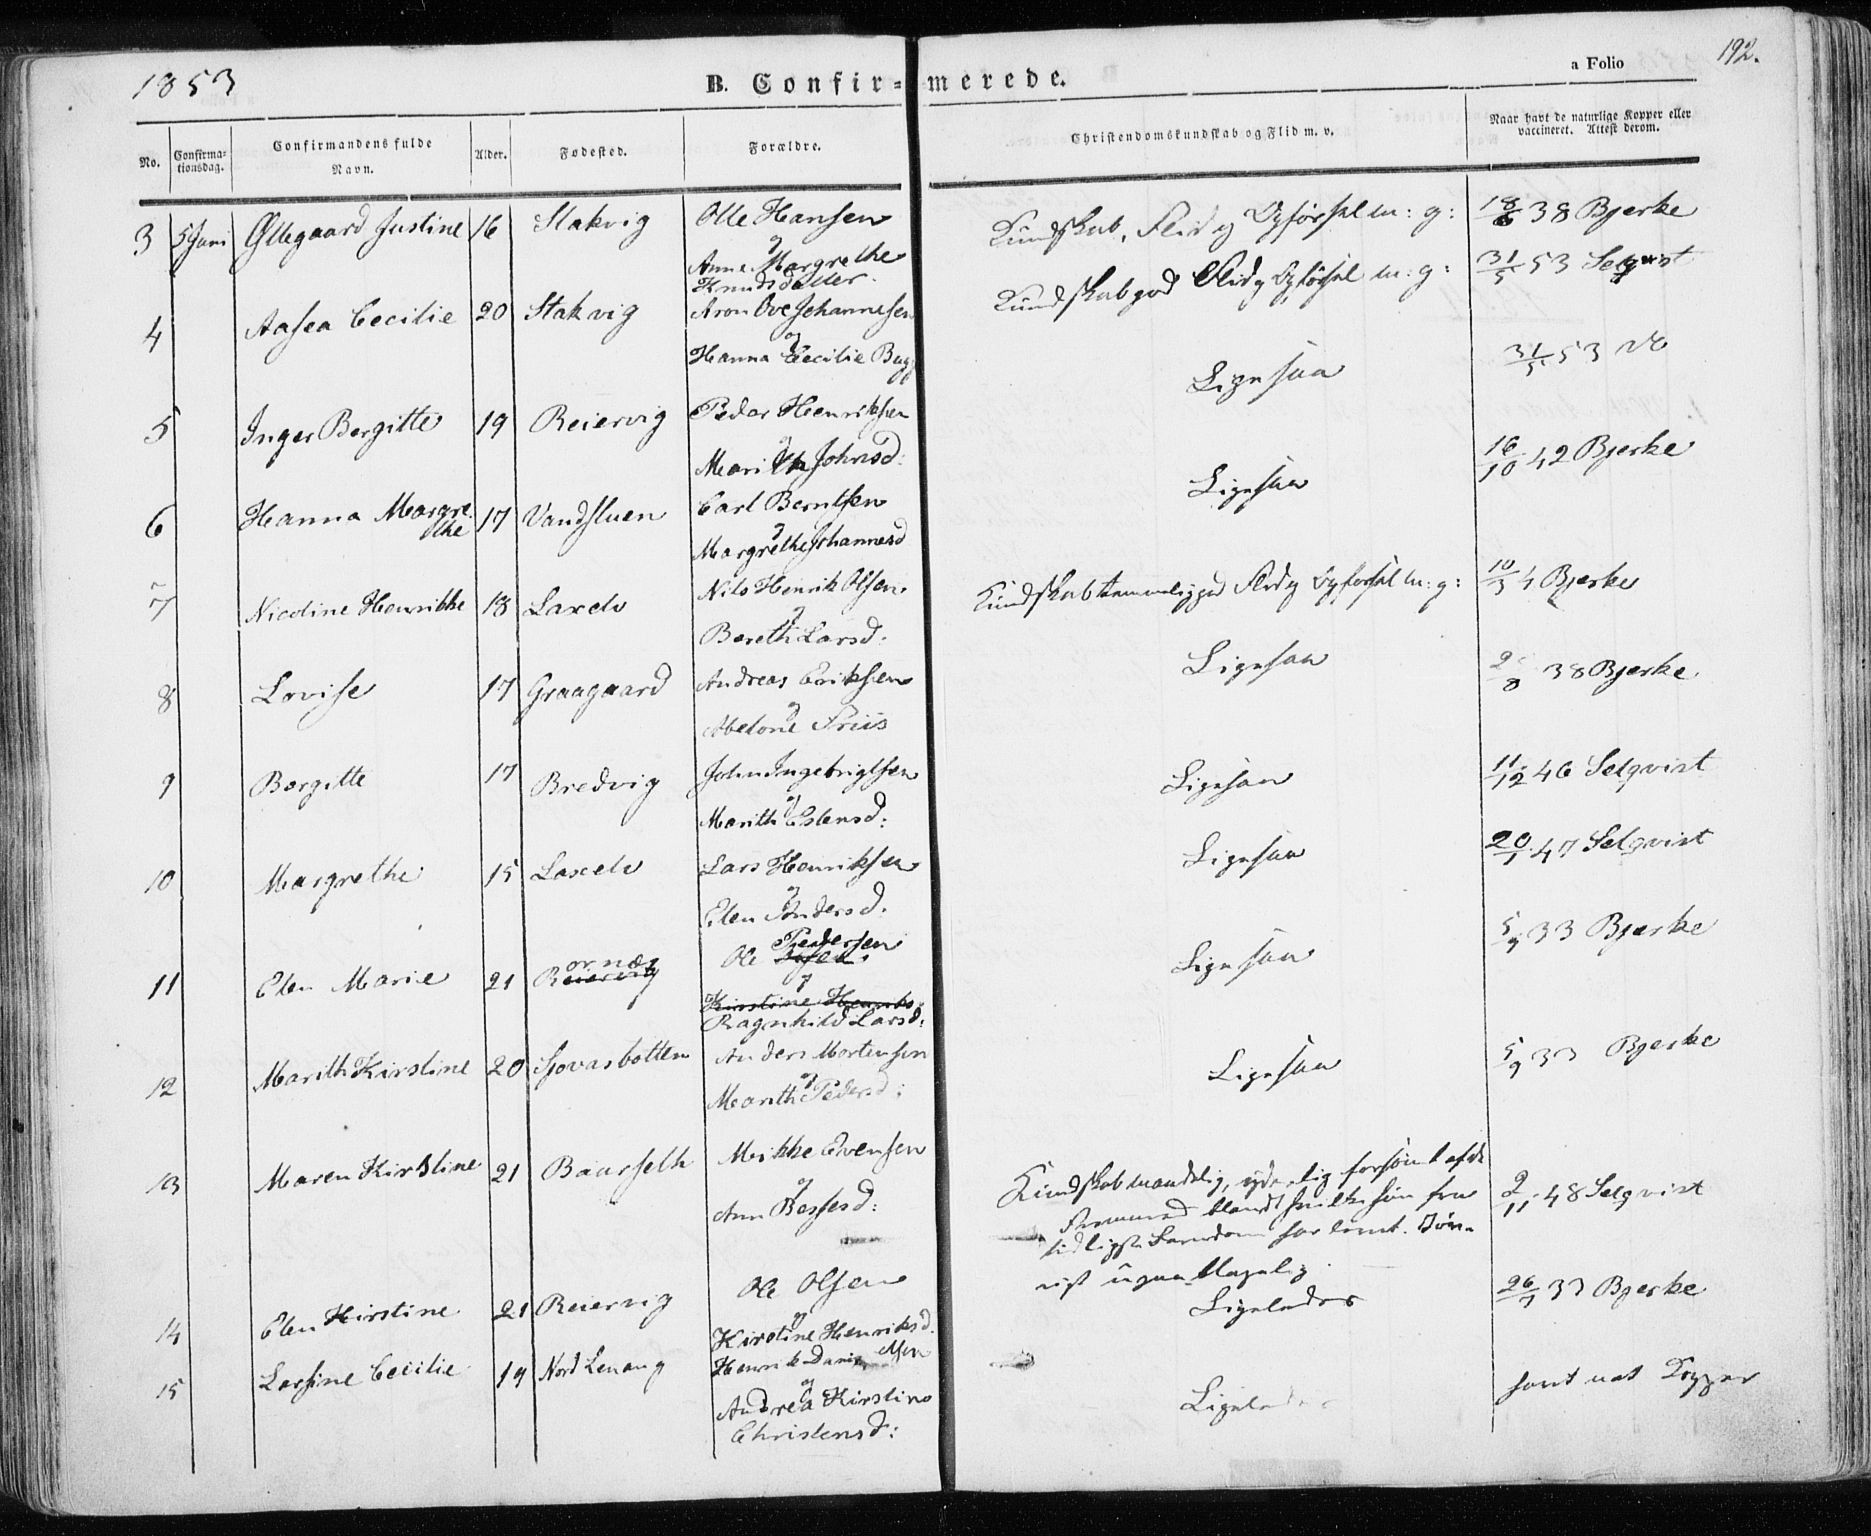 1853
B. Confir- merede.
a Folio
192.
No.
Confirma-
tionsdag.
Confirmandens fulde
Navn.
Alder.
Fødested.
Forældre.
Christendomskundskab og Flid m. v.
Naar havt de naturlige Kopper eller
vaccineret. Attest derom.
3 5 Juni Øllegaard Justine 16 Stakvig Olle Hansen Kundskab, Flid og Opførsel m: g: 18/6 38 Bjerke
og
Anne Margrethe
Knudsdatter.
4 Aasea Cecilie 20 Stakvig Aron Ove Johannesen Kundskab god Flid og Opførsel m: g: 31/5 53 Selqvist
og
Hanna Cecilie Bugge
5 Inger Bergitte 19 Reiervig Peder Henriksen Ligesaa 31/5 53
og
Marith Johnsd:
6 Hanna Margre-
the 17 Vandstuen Carl Berntsen Ligesaa 16/10 42 Bjerke
og
Margrethe Johannesd
7 Nicoline Henrikke 18 Laxelv Nils Henrik Olsen Kundskab temmelig god Flid og Opførsel m: g: 10/3 4 Bjerke
og
Bereth Larsd:
8 Lovise 17 Graagaard Andreas Eriksen Ligesaa 2/8 38 Bjerke
og
Abelone Friis
9 Bergitte 17 Bredvig John Ingebrigtsen Ligesaa 11/12 46 Selqvist
og
Marith Estensd:
10 Margrethe 15 Laxelv Lars Henriksen Ligesaa 20/1 47 Selqvist
og
Elen Andersd.
11 Elen Marie 21 Reiervig ornæs Ole Olsen Pedersen Ligesaa 5/9 33 Bjerke
og
Kirstine Henriks
Ragnhild Larsd:
12 Marith Kirstine 20 Sjovasbotten Anders Mortensen Ligesaa 5/9 33 Bjerke
og
Marith Pedersd:
13 Maren Kirstine 21 Baarseth Mikke Evensen Kundskab maadelig, yderlig forsømt af de 2/11 48 Selqvist
og
Ann Bessesd:
Fremmed blandt hvilke hun fra
tidligste Barndom har tient. Iøv-
rigt upaaklagelig
14 Elen Kirstine 21 Reiervig Ole Olsen Ligeledes 26/7 33 Bjerke
og
Kirstine Henriksd.
15 Larsine Cecilie 19 Nord Lenang Henrik Danielsen Ligeledes havt nat Kopper
og
Andrea Kirstine
Christensd: